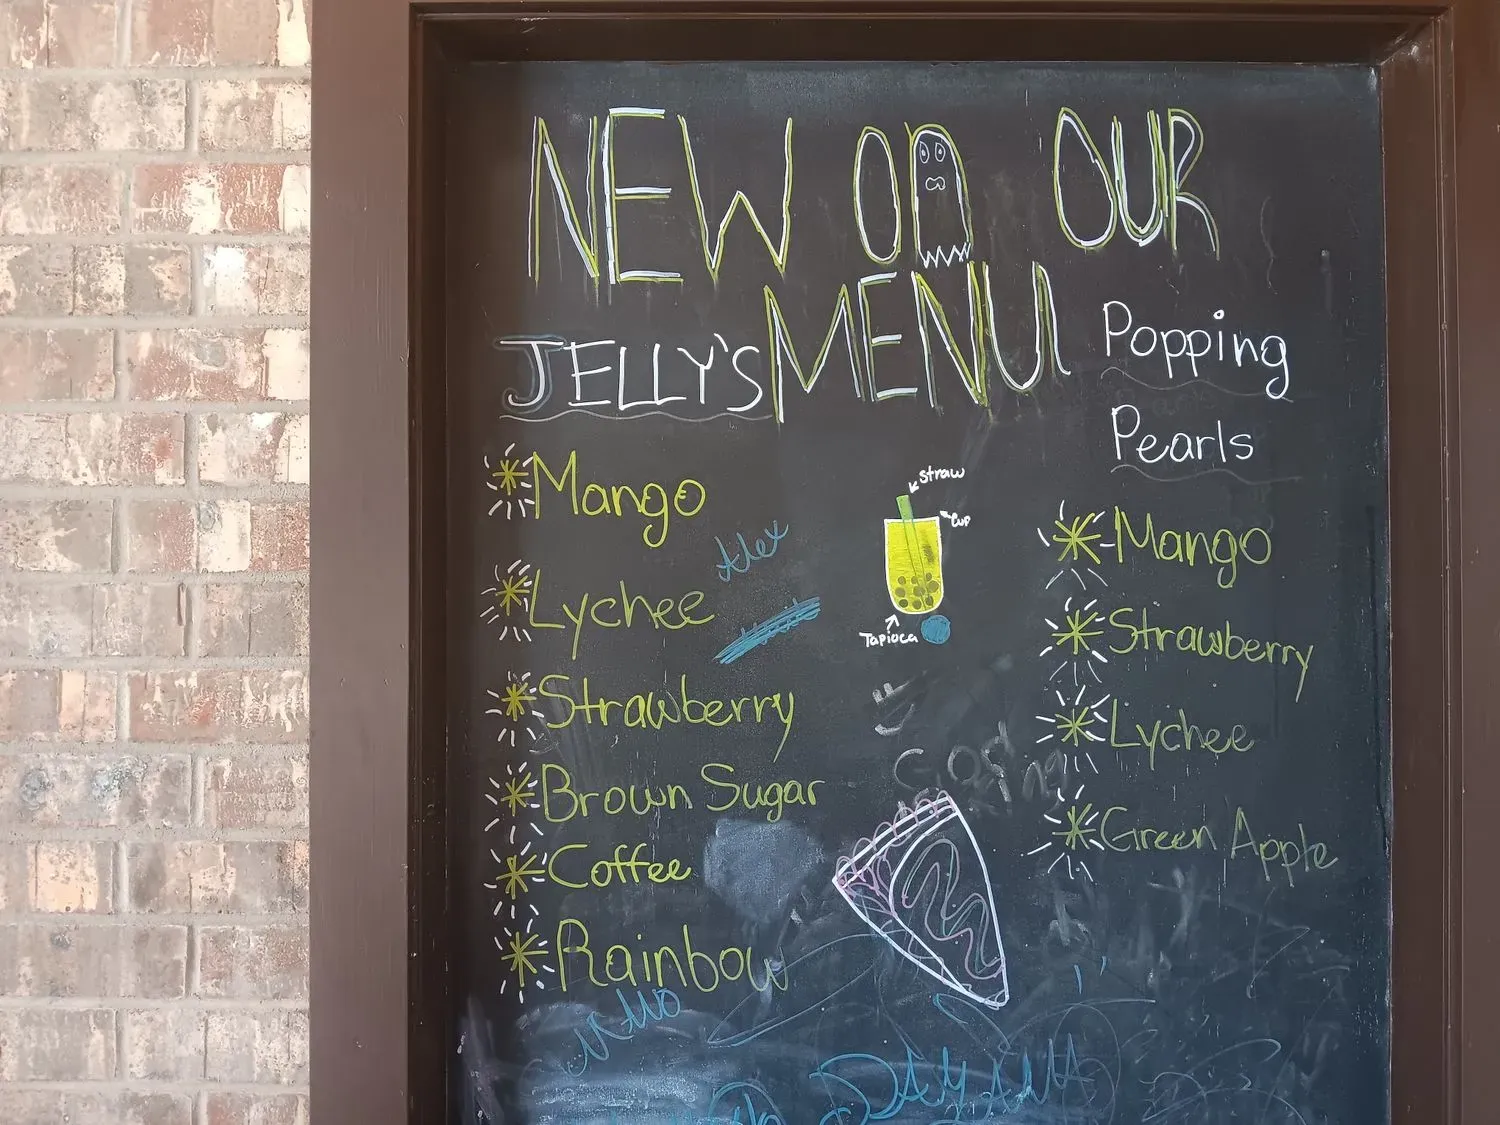 NEW ON OUR
MENU
JELLY'S
Mango
Lychee
Strawberry
Brown Sugar
Coffee
Rainbow
Alex
straw
Cup
Tapioca
Popping
Pearls
Mango
Strawberry
Lychee
Green Apple
DAYANA